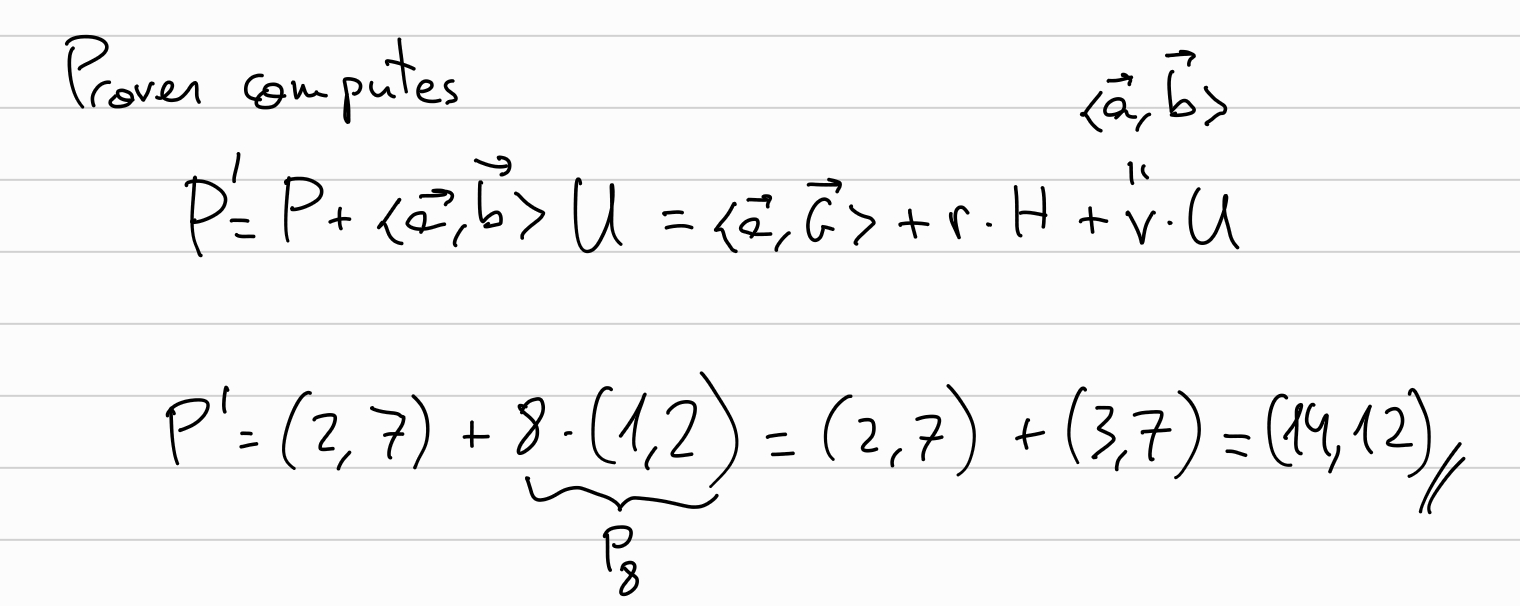 Prover computes
⟨a⃗, b⃗⟩
"
P' = P + ⟨a⃗, b⃗⟩ U = ⟨a⃗, G⃗⟩ + r · H + v · U
P' = (2, 7) + 8 · (1, 2) = (2, 7) + (3, 7) = (14, 12) //
P₈